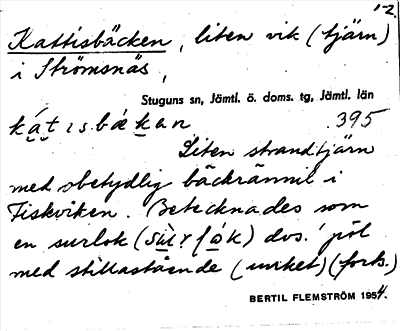 1-2.
Kattisbäcken, liten vik (tjärn)
i Strömsnäs,
Stuguns sn, Jämtl. ö. doms. tg, Jämtl. län
395
Liten strandtjärn
med obetydlig bäckrännil i
Fiskviken. Betecknades som
en surlok dvs. pöl
med stillastående (mycket) (fork.)
BERTIL FLEMSTRÖM 1954.